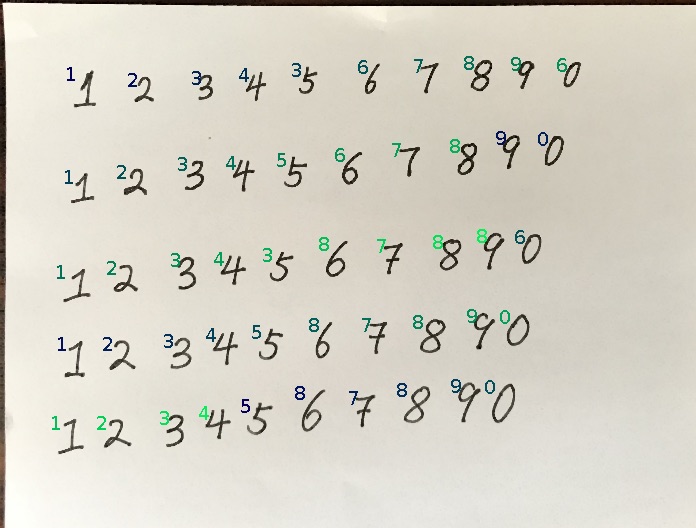 1 1 2 2 3 3 4 4 3 5 6 6 7 7 8 8 9 9 6 0
1 1 2 2 3 3 4 4 5 5 6 6 7 7 8 8 9 9 0 0
1 1 2 2 3 3 4 4 3 5 8 6 7 7 8 8 8 9 6 0
1 1 2 2 3 3 4 4 5 5 8 6 7 7 8 8 9 9 0 0
1 1 2 2 3 3 4 4 5 5 8 6 7 7 8 8 9 9 0 0